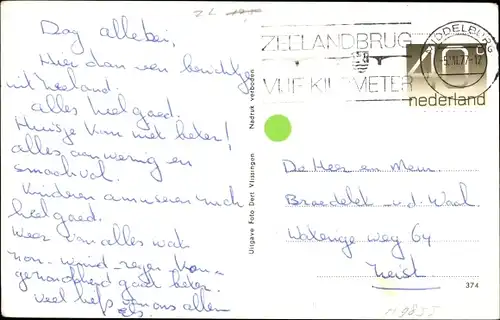 Dag allebei,
Hier dan een berichtje
uit Zeeland.
alles heel goed.
Huisje kan niet beter!
alles aanwezig en
smaakvol.
Kinderen amuseren zich
heel goed.
Weer van alles wat
zon - wind - regen
gezondheid gaat beter.
Veel liefs van ons allen
Uitgave Foto Dert Vlissingen
Nadruk verboden
ZEELANDBRUG
VIJF KILOMETER
MIDDELBURG
40
nederland
De Heer en Mevr.
v.d. Waal
weg 64
Zeist
374